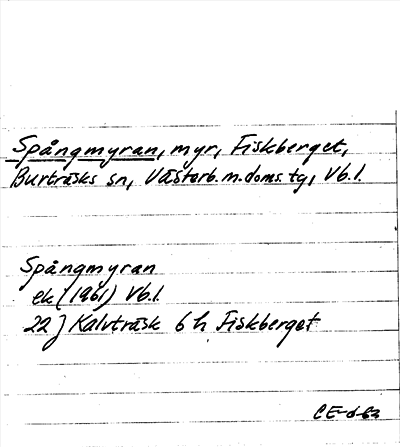 Spångmyran, myr, Fiskberget,
Burträsks sn, Västerb. m. doms. tg, Vb. l.
Spångmyran
ek (1961) Vb. l.
22 J Kalvträsk 6 h Fiskberget